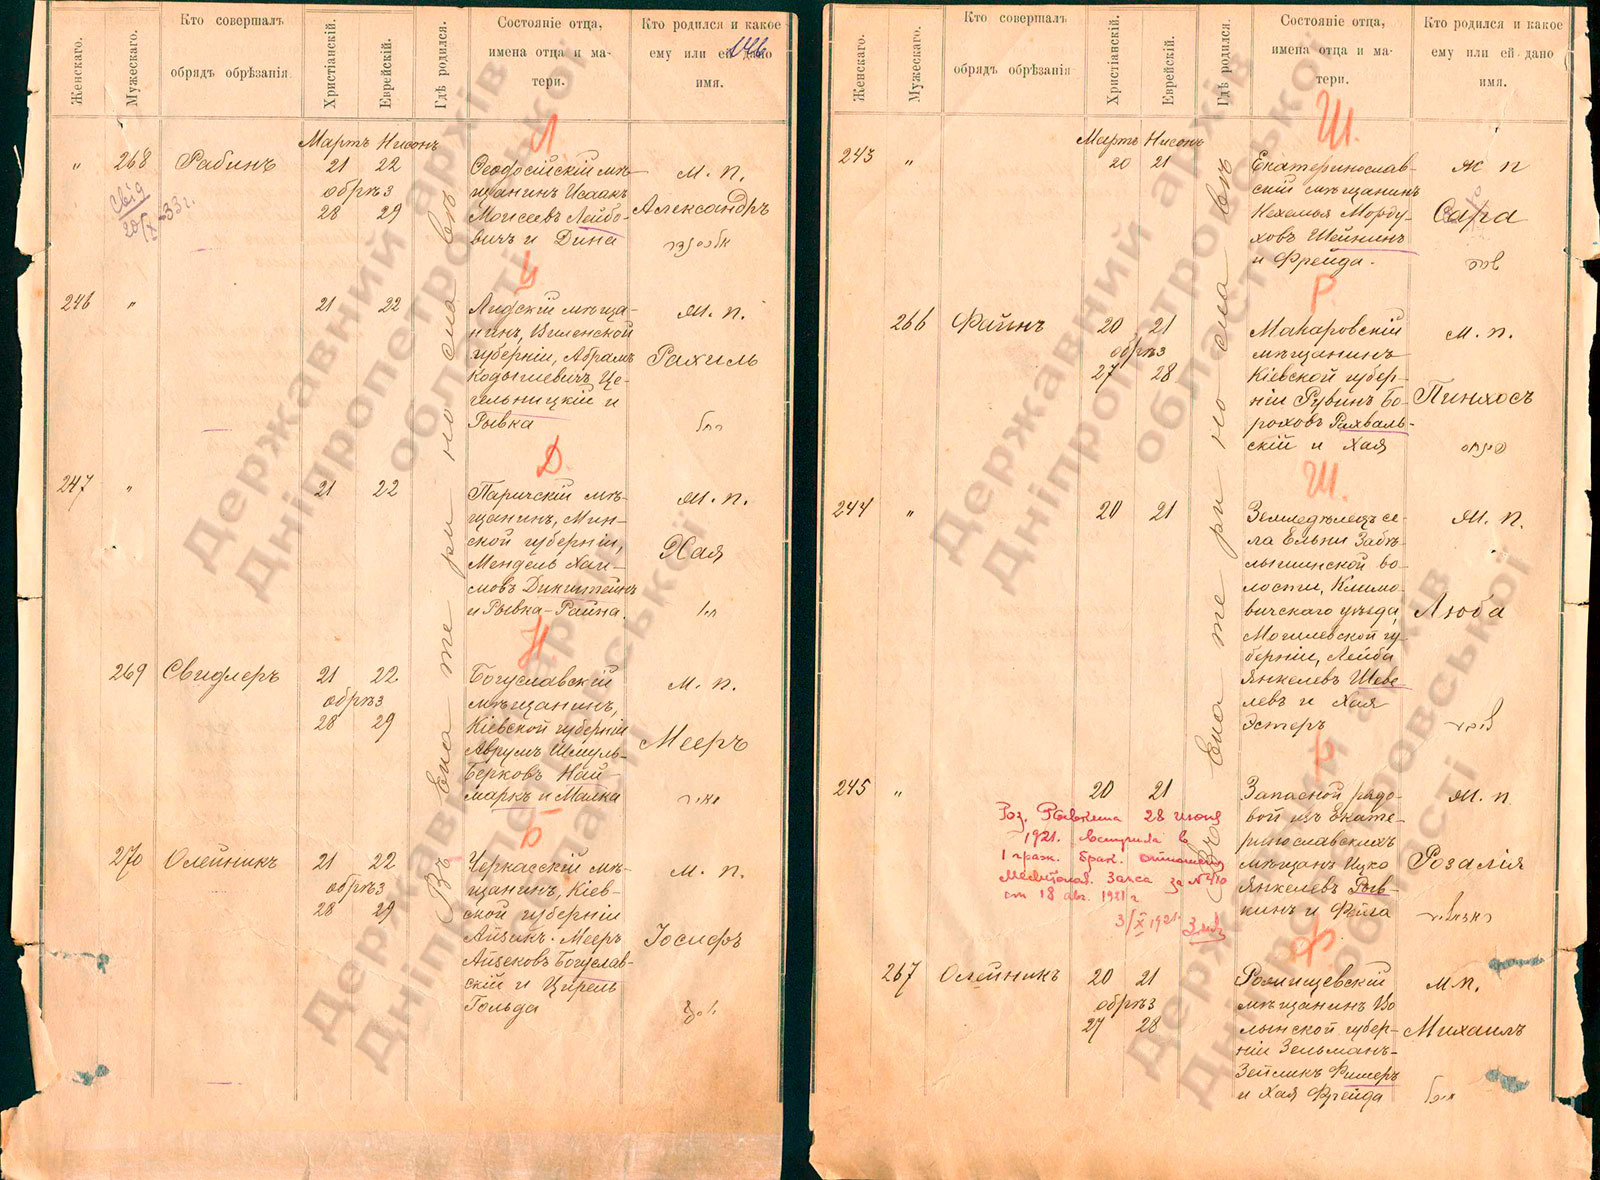 Женскаго.
Мужескаго.
Кто совершалъ
обрядъ обрѣзанія
Христіанскій.
Еврейскій.
Гдѣ родился.
Состояніе отца,
имена отца и ма-
тери.
Кто родился и какое
ему или ей дано
имя.
146
Л
Мартъ Нисонъ
" 268 Рабинъ 21 22
обрѣз
28 29
Свід
20/X-33г.
Ѳеодосійскій мѣ-
щанинъ Исаакъ
Моисеевъ Лейбо-
вичъ и Дина
м. п.
Александръ
Ц
246 " 21 22
Лидскій мѣща-
нинъ, Виленской
губерніи, Абрамъ
Це-
гельницкій и
Рывка
м. п.
Рахиль
Д.
247 " 21 22
Паричскій мѣ-
щанинъ, Мин-
ской губерніи,
Мендель Хаи-
мовъ Дикштейнъ
и Рывка-Райна.
м. п.
Хая
Н.
269 Свидлеръ 21 22
обрѣз
28 29
Богуславскій
мѣщанинъ,
Кіевской губерніи
Аврумъ Шмуль-
Берковъ Най-
маркъ и Малка
м. п.
Мееръ
Б
270 Олейникъ 21 22
обрѣз
28 29
Черкасскій мѣ-
щанинъ, Кіев-
ской губерніи
Айзикъ-Мееръ
Айзековъ Богуслав-
скій и Цирель
Гольда
м. п.
Іосифъ
Въ Екатеринославѣ
Державний архів
Дніпропетровської
області
Державний архів
Дніпропетровської
області
Женскаго.
Мужескаго.
Кто совершалъ
обрядъ обрѣзанія
Христіанскій.
Еврейскій.
Гдѣ родился.
Состояніе отца,
имена отца и ма-
тери.
Кто родился и какое
ему или ей дано
имя.
Ш.
Мартъ Нисонъ
243 " 20 21
Екатеринослав-
скій мѣщанинъ
Нехемья Морду-
ховъ Шейнинъ
и Фрейда.
ж п
Сара
Р.
266 Файнъ 20 21
обрѣз
27 28
Макаровскій
мѣщанинъ
Кіевской губер-
ніи Рувинъ Бо-
роховъ Рахваль-
скій и Хая
м. п.
Пинхосъ
Ш.
244 " 20 21
Земледѣлецъ се-
ла Ельни Забѣ-
лышинской во-
лости, Климо-
вичскаго уѣзда,
Могилевской гу-
берніи, Лейба
Янкелевъ Шеве-
левъ и Хая
Эстеръ
м. п.
Люба
Р
245 " 20 21
Запасной рядо-
вой изъ Екате-
ринославскихъ
мѣщанъ Ицко
Янкелевъ Рыв-
кинъ и Фейга
м. п
Розалія
Роз. Рывкина 28 июня
1921. вступила в
1 граж. брак.
Загса за №410
от 18 авг. 1921г
3/X 1921.
Ф.
267 Олейникъ 20 21
обрѣз
27 28
Рожищевскій
мѣщанинъ Во-
лынской губер-
ніи Зельманъ-
Зейликъ Фишеръ
и Хая Фрейда
м.п.
Михаилъ
Въ Екатеринославѣ
Державний архів
Дніпропетровської
області
Державний архів
Дніпропетровської
області